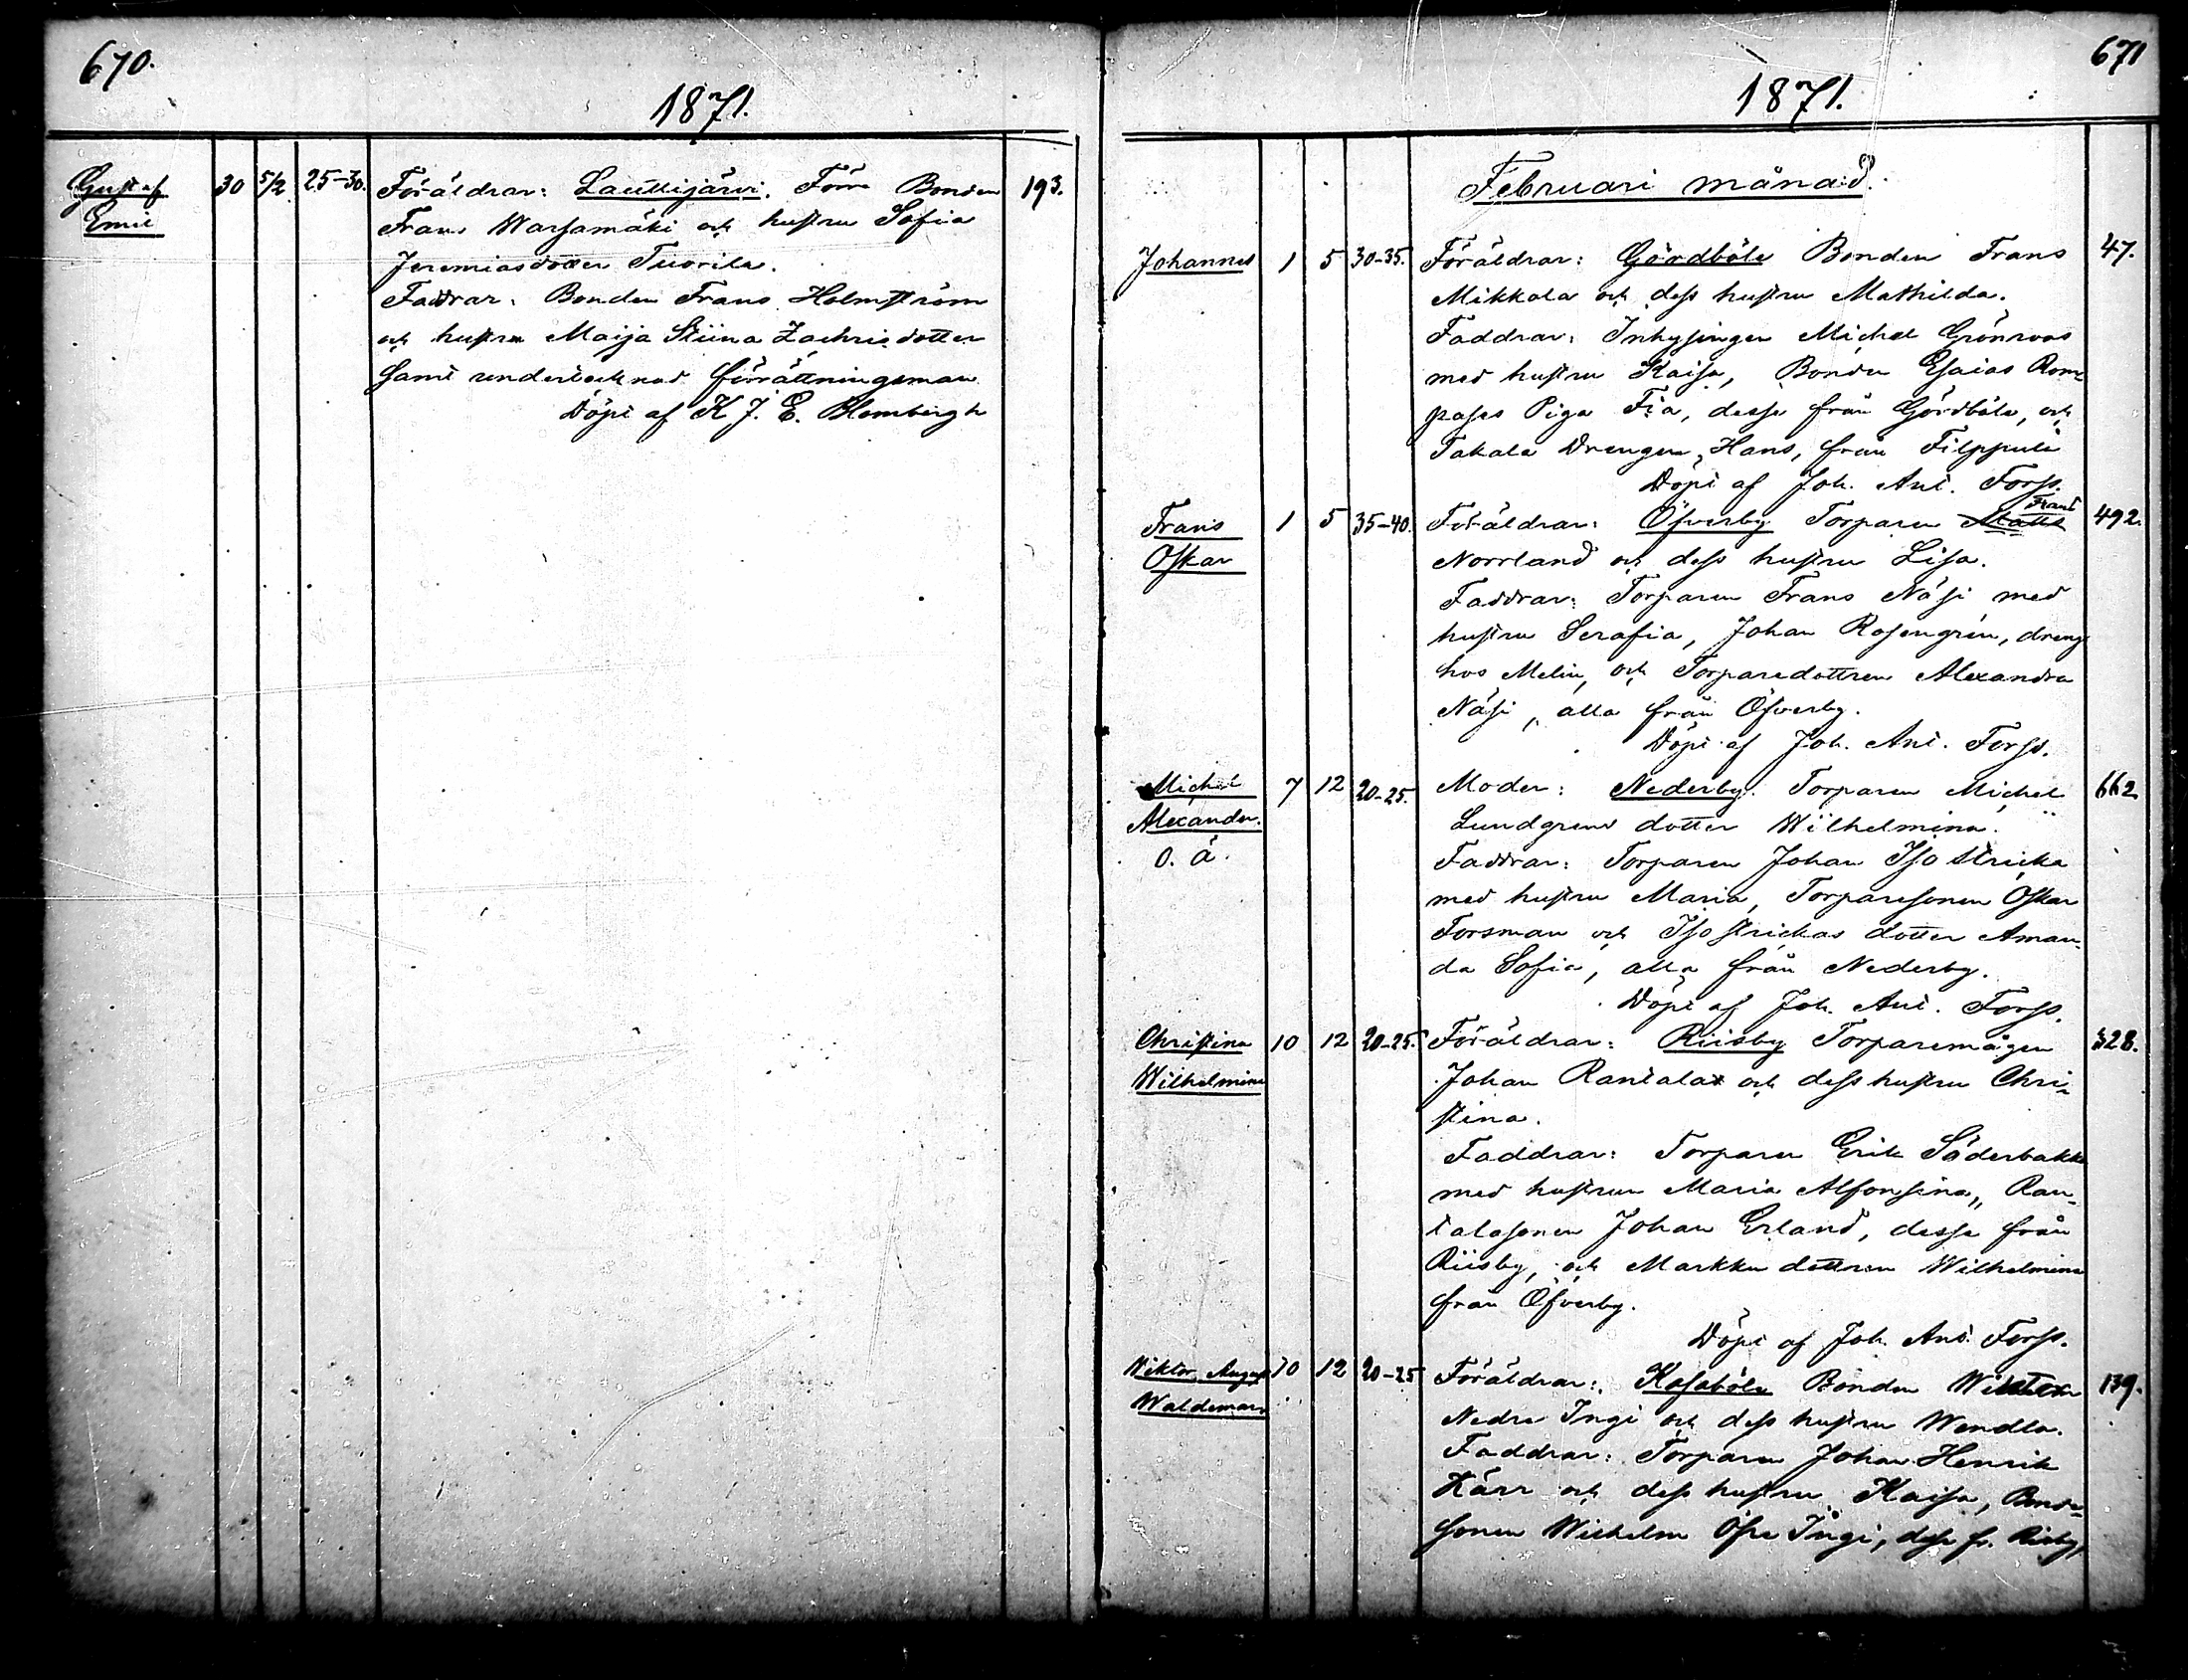 670.
1871.
Gustaf 30 5/2 25-30. Föräldrar: Lauttijärvi. Förre Bonden 193.
Emil Frans Warsamäki och hustru Sofia
Jeremiasdotter Tuorila.
Faddrar: Bonden Frans Holmström
och hustru Maija Stiina Zachrisdotter
samt undertecknad förrättningsman
Döpt af K J. E. Blombergh
671
1871.
Februari månad.
Johannes 1 5 30-35. Föräldrar: Gördböle Bonden Frans 47.
Mikkola och dess hustru Mathilda.
Faddrar: Inhysingen Michel Grönroos
med hustru Kaisa, Bonden Esaias Rom-
pases Piga Fia, desse från Gördböle, och
Takala Drengen, Hans, från Filppula
Döpt af Joh. Ant. Forss.
Frans 1 5 35-40. Föräldrar: Öfverby Torparen Matts Frans 492.
Oskar Norrland och dess hustru Lisa.
Faddrar: Torparen Frans Näsi med
hustru Serafia, Johan Rosengrén, dreng
hos Melin, och Torparedottren Alexandra
Näsi, alla från Öfverby.
Döpt af Joh. Ant. Forss.
Michel 7 12 20-25. Moder: Nederby. Torparen Michel 662
Alexander. Lundgrens dotter Wilhelmina.
O. ä. Faddrar: Torparen Johan Iso Stricka
med hustru Maria, Torparesonen Oskar
Forsman och Iso Strickas dotter Aman-
da Sofia, alla från Nederby.
Döpt af Joh. Ant. Forss.
Christina 10 12 20-25. Föräldrar: Riisby Torparemågen 328.
Wilhelmina Johan Rantala och dess hustru Chri-
stina.
Faddrar: Torparen Erik Söderbakka
med hustrun Maria Alfonsina, Ran-
talasonen Johan Erland, desse från
Riisby, och Markku dottren Wilhelmina
från Öfverby.
Döpt af Joh. Ant. Forss.
Wiktor August 10 12 20-25 Föräldrar: Kosaböle Bonden 139.
Waldemar Nedre Ingi och dess hustru Wendla.
Faddrar: Torparen Johan Henrik
Kärr och dess hustru Kaisa, Bonde-
sonen Wilhelm Öfre Ingi, desse fr. Risby,